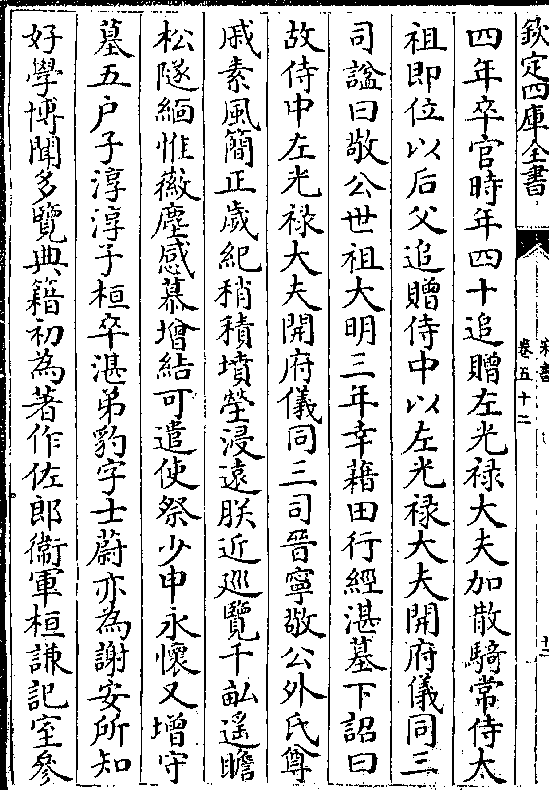 欽定四庫全書
宋書
卷五十二
四年卒官時年四十追贈左光祿大夫加散騎常侍太
祖即位以后父追贈侍中以左光祿大夫開府儀同三
司諡曰敬公世祖大明三年幸藉田行經湛墓下詔曰
故侍中左光祿大夫開府儀同三司晉寧敬公外氏尊
戚素風簡正歲紀稍積墳塋浸遠朕近巡覽千畆遥瞻
松隧緬惟徽塵感慕增結可遣使祭少申永懷又增守
墓五户子淳淳子桓卒湛弟豹字士蔚亦為謝安所知
好學博聞多覽典籍初為著作佐郎衞軍桓謙記室參